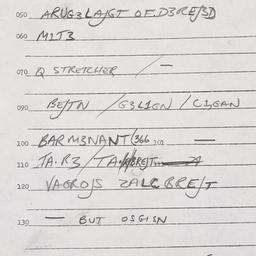 050 ARUG3LAJGT OF.D3REJSD
060 M1T3
070 Q STRETCHER / —
090 BEJTN /G3L1GN / C1,GAN
100 BARM3NANT (366 101 —
110 TA.R3 /
120 VAGROJS ZALC BREJT
130 — BUT OSG1SN